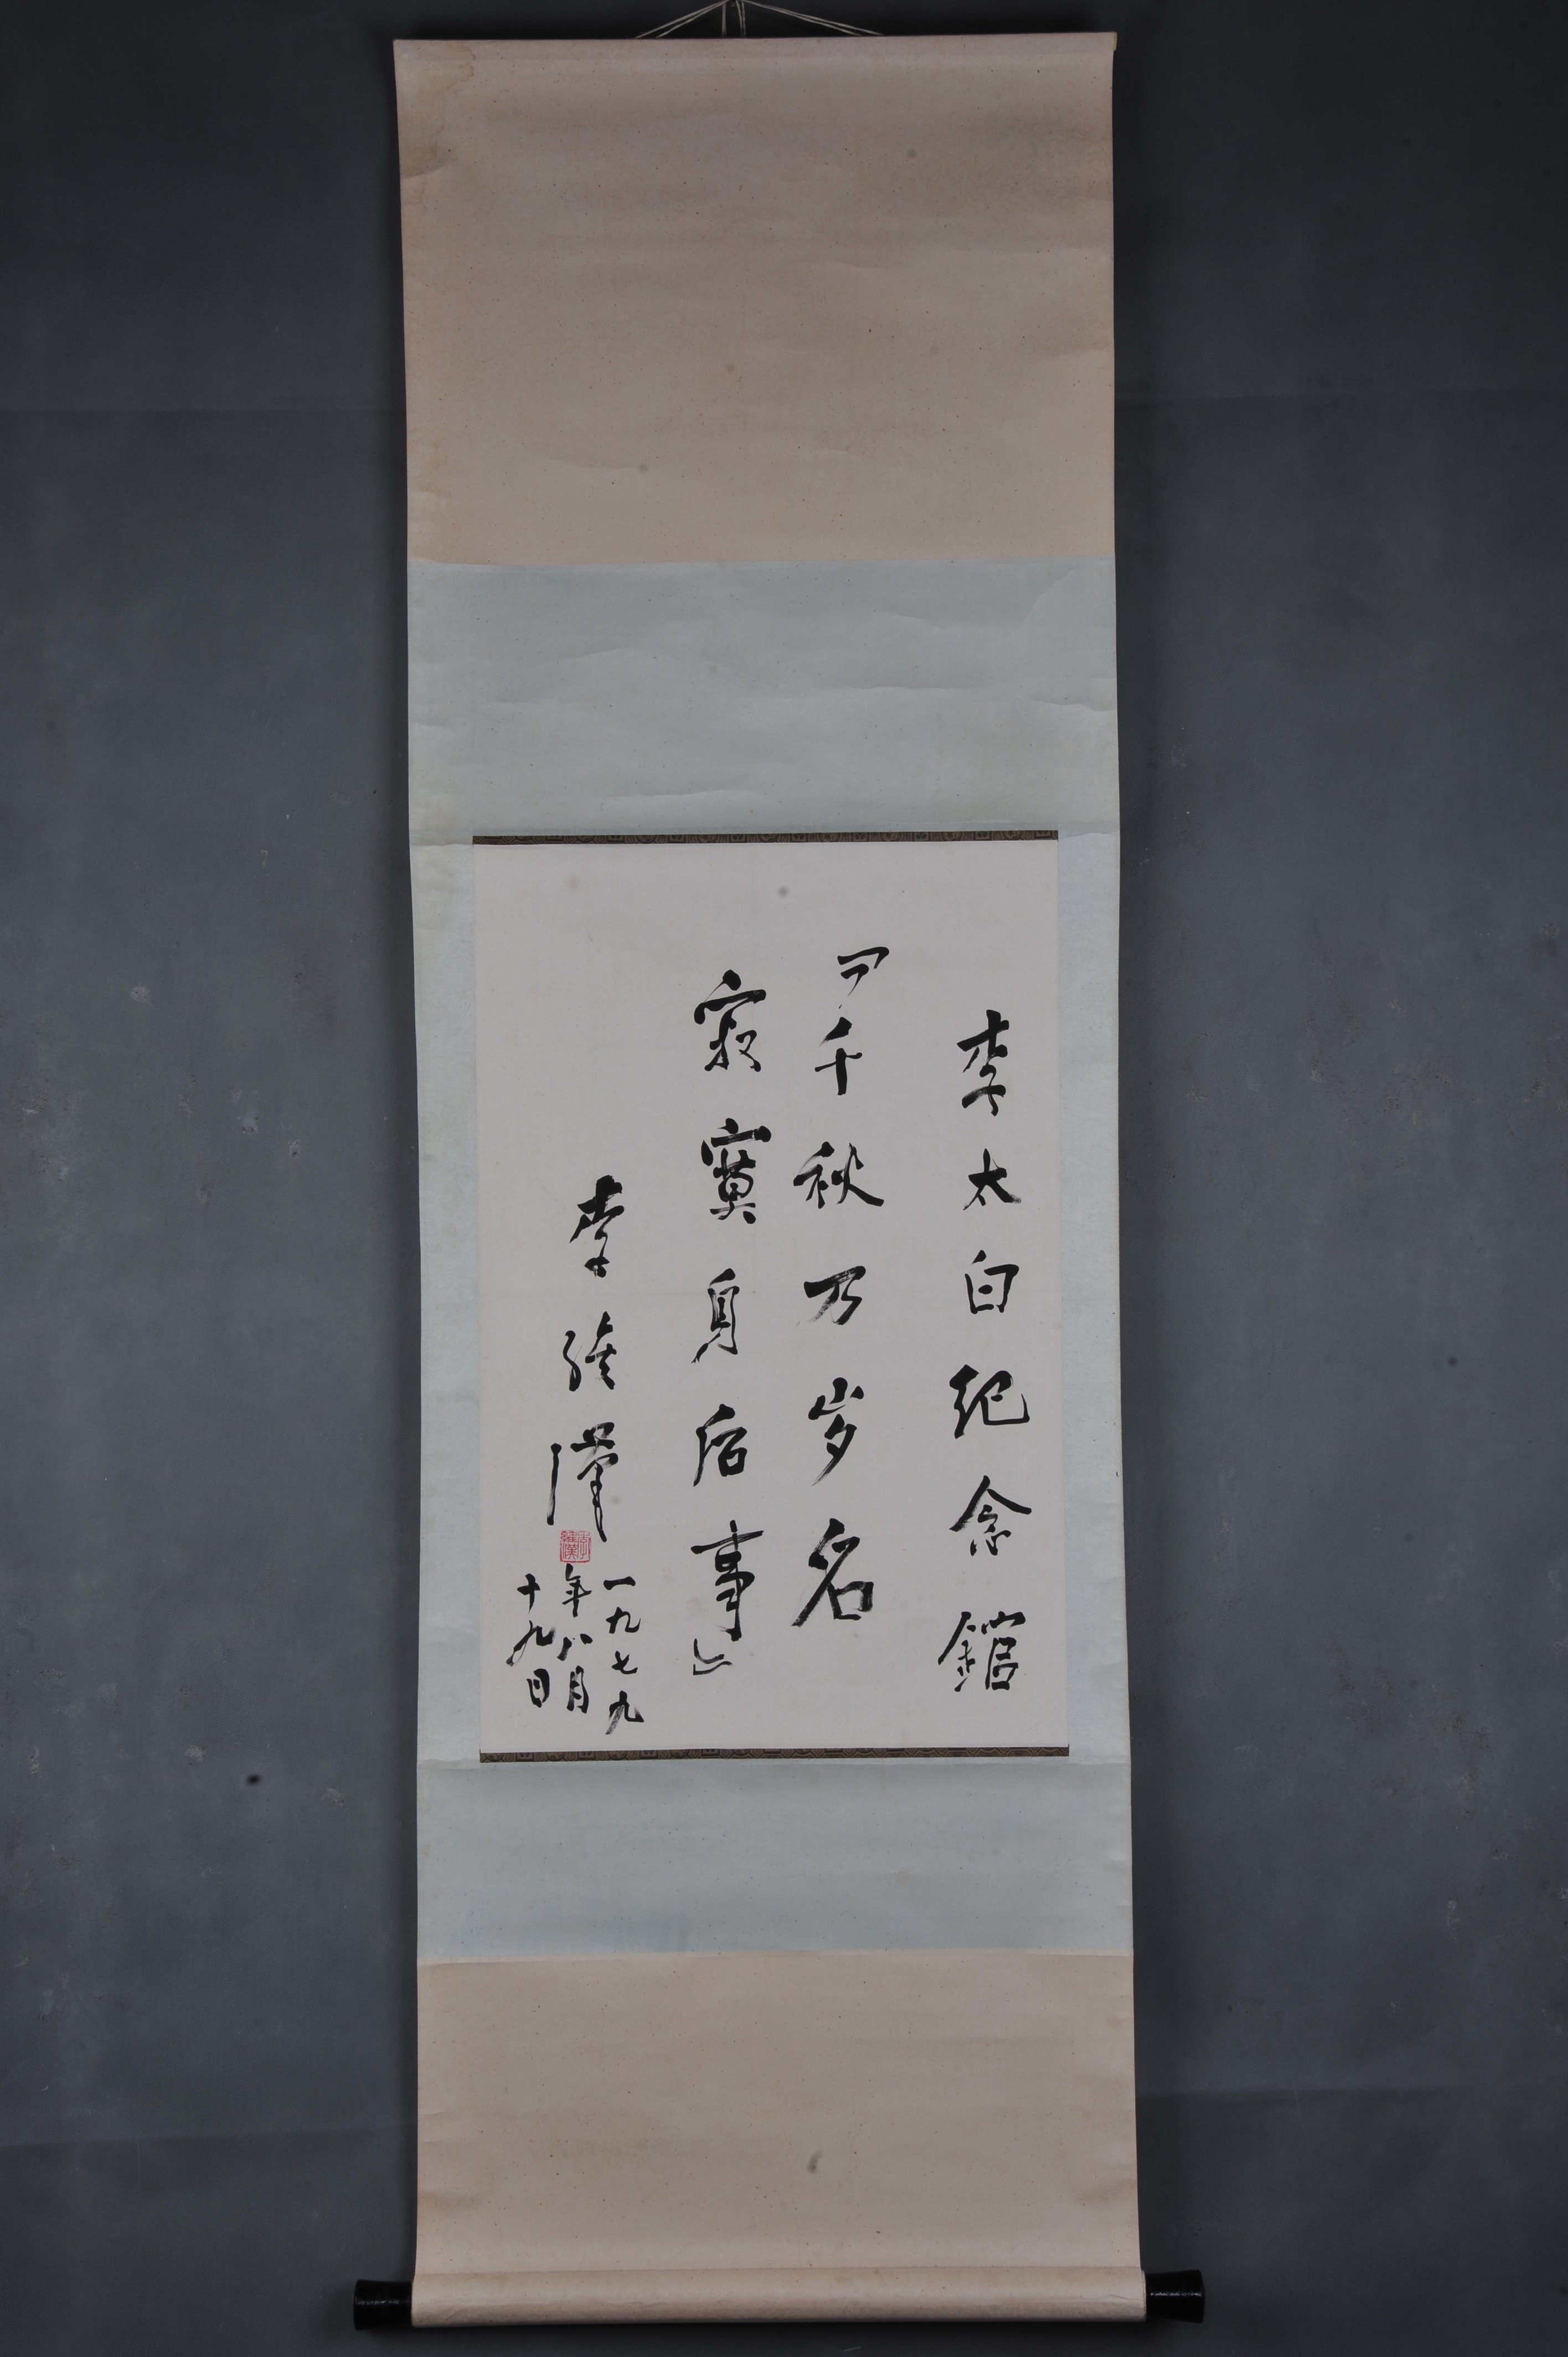 李太白纪念館
『千秋乃岁名
寂寞身后事』
李維漢
一九七九
年八月
十九日